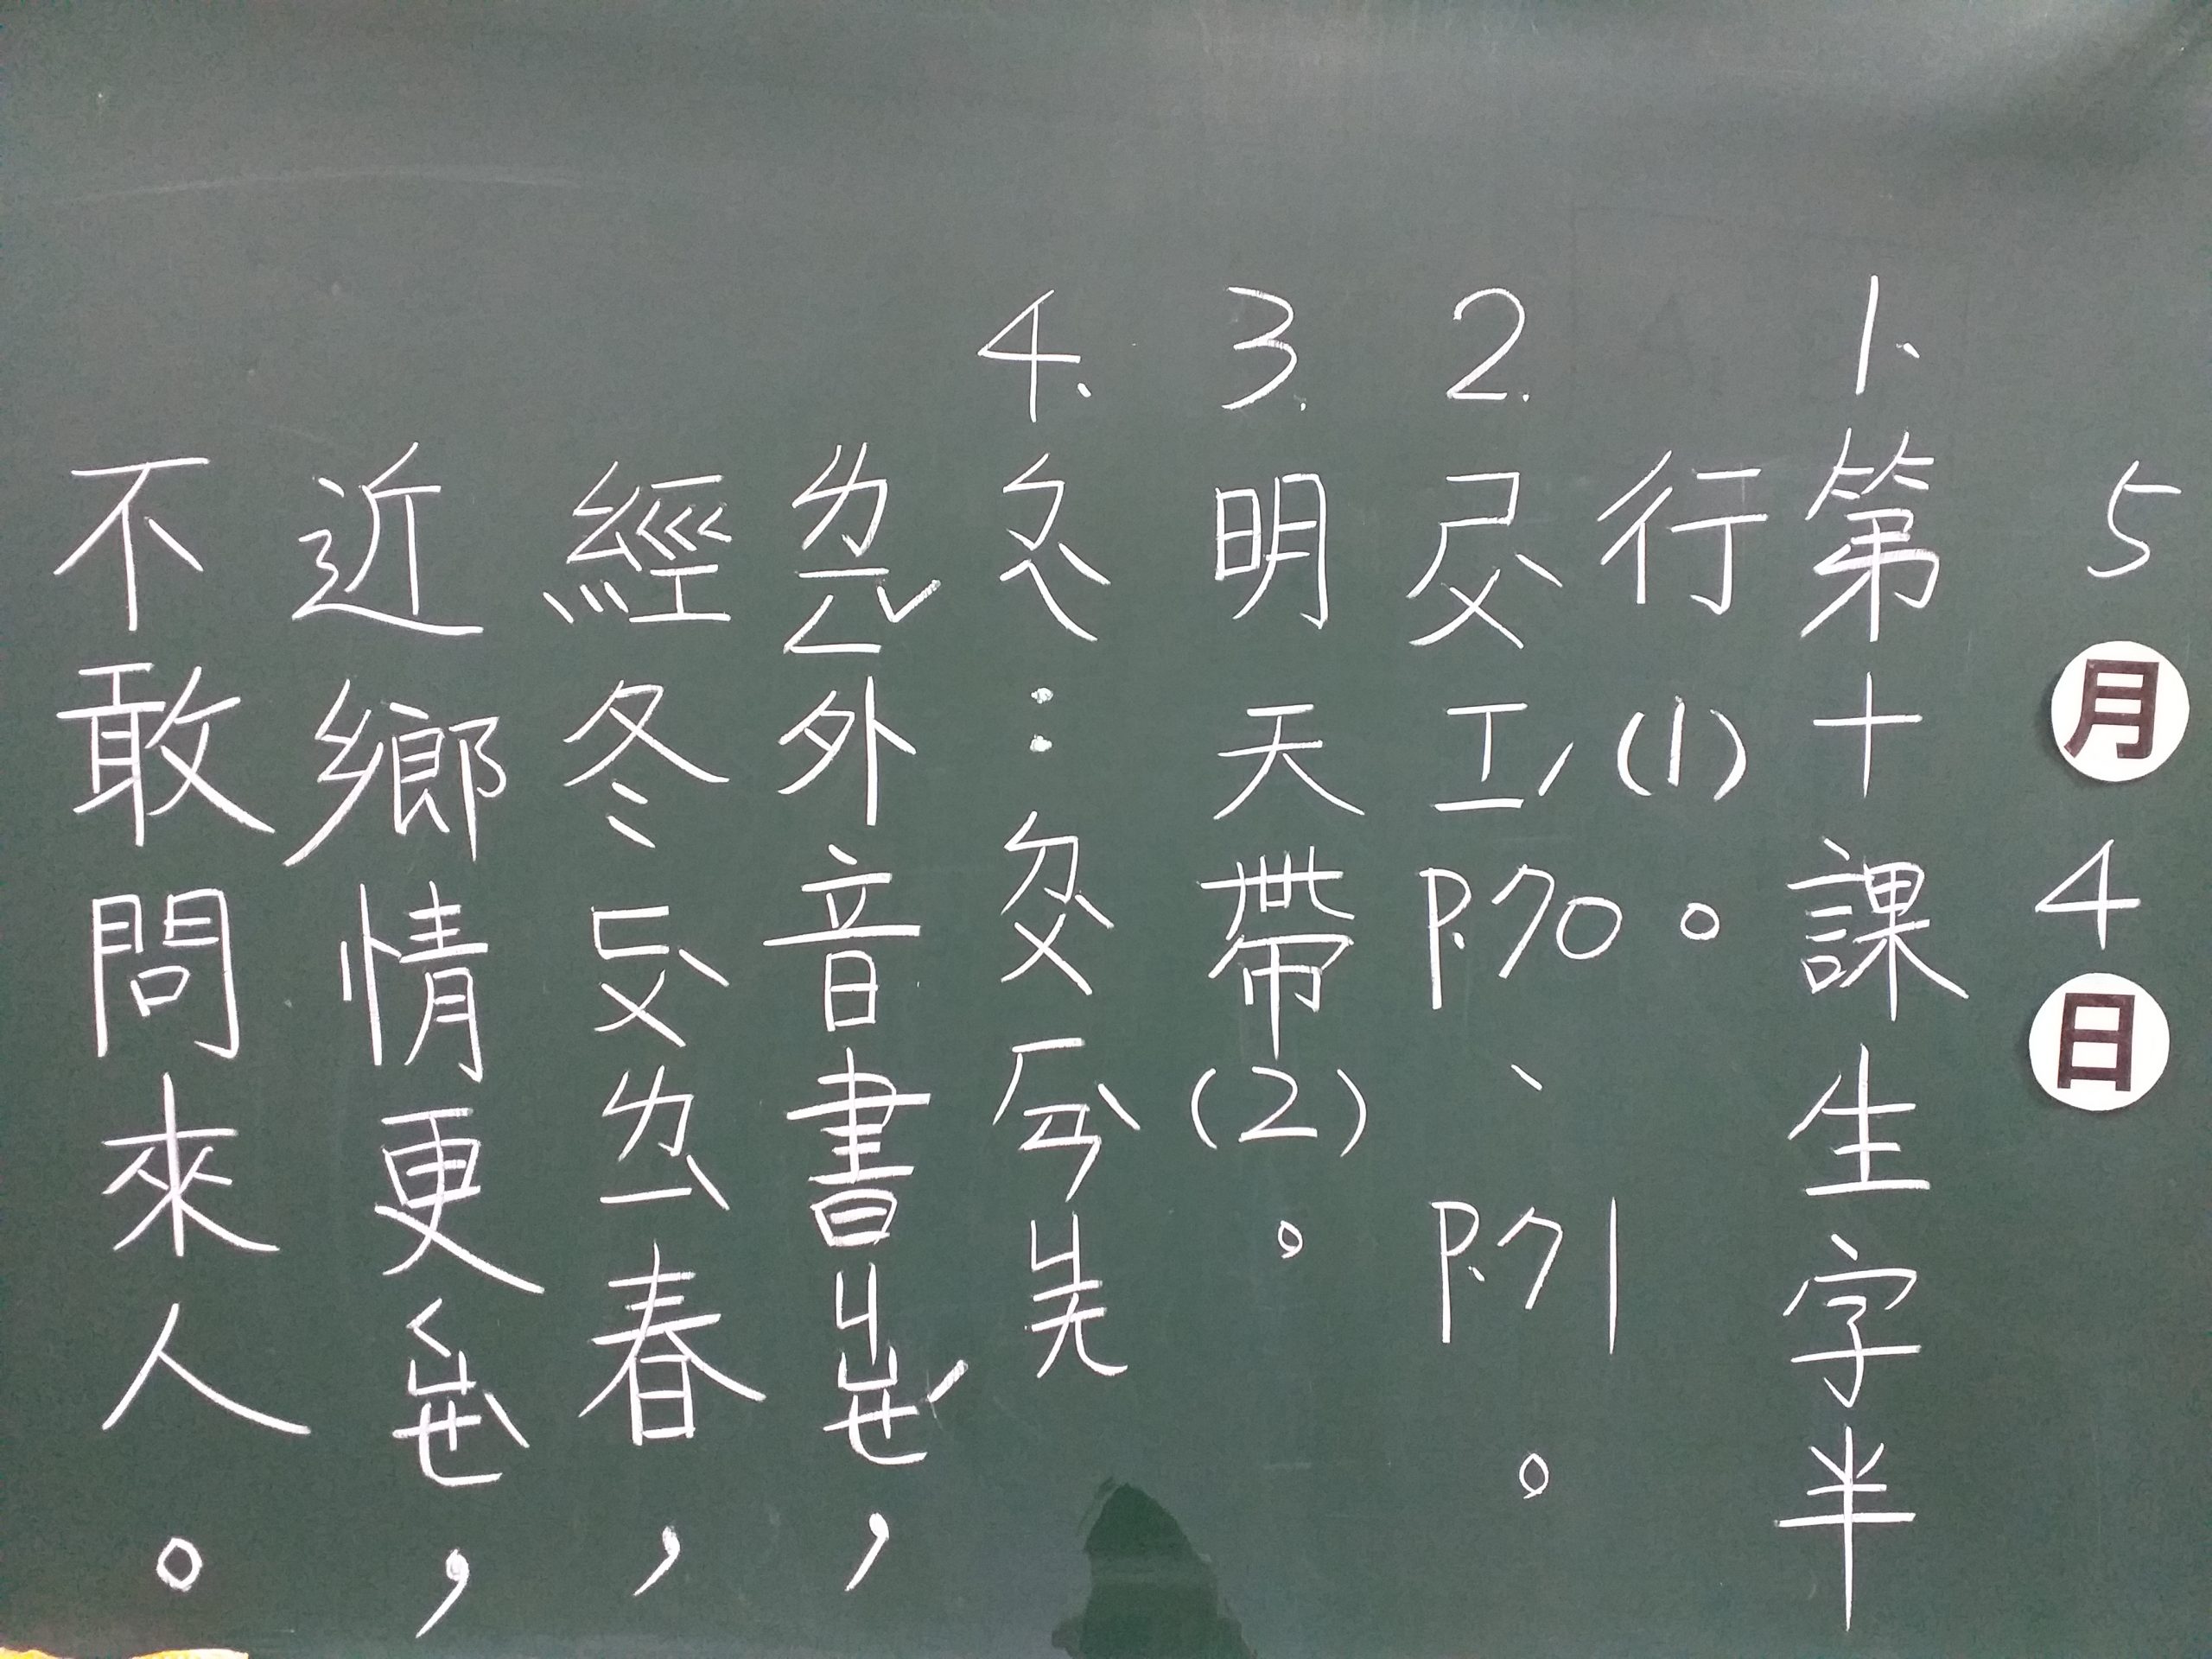 5月4日
1.第十課生字半
行(1)。
2.ㄕㄨˋㄒㄧˊP.70、P.71。
3.明天帶(2)。
4.ㄅㄟˋ：ㄉㄨˋㄏㄢˋㄐㄧㄤ
ㄌㄧㄥˇ外音書ㄐㄩㄝˊ，
經冬ㄈㄨˋㄌㄧˋ春，
近鄉情更ㄑㄧㄝˋ，
不敢問來人。